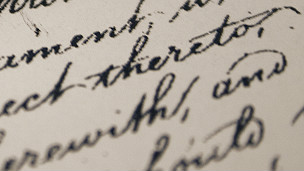 ament, 
ect thereto,
erewith, and
hould,